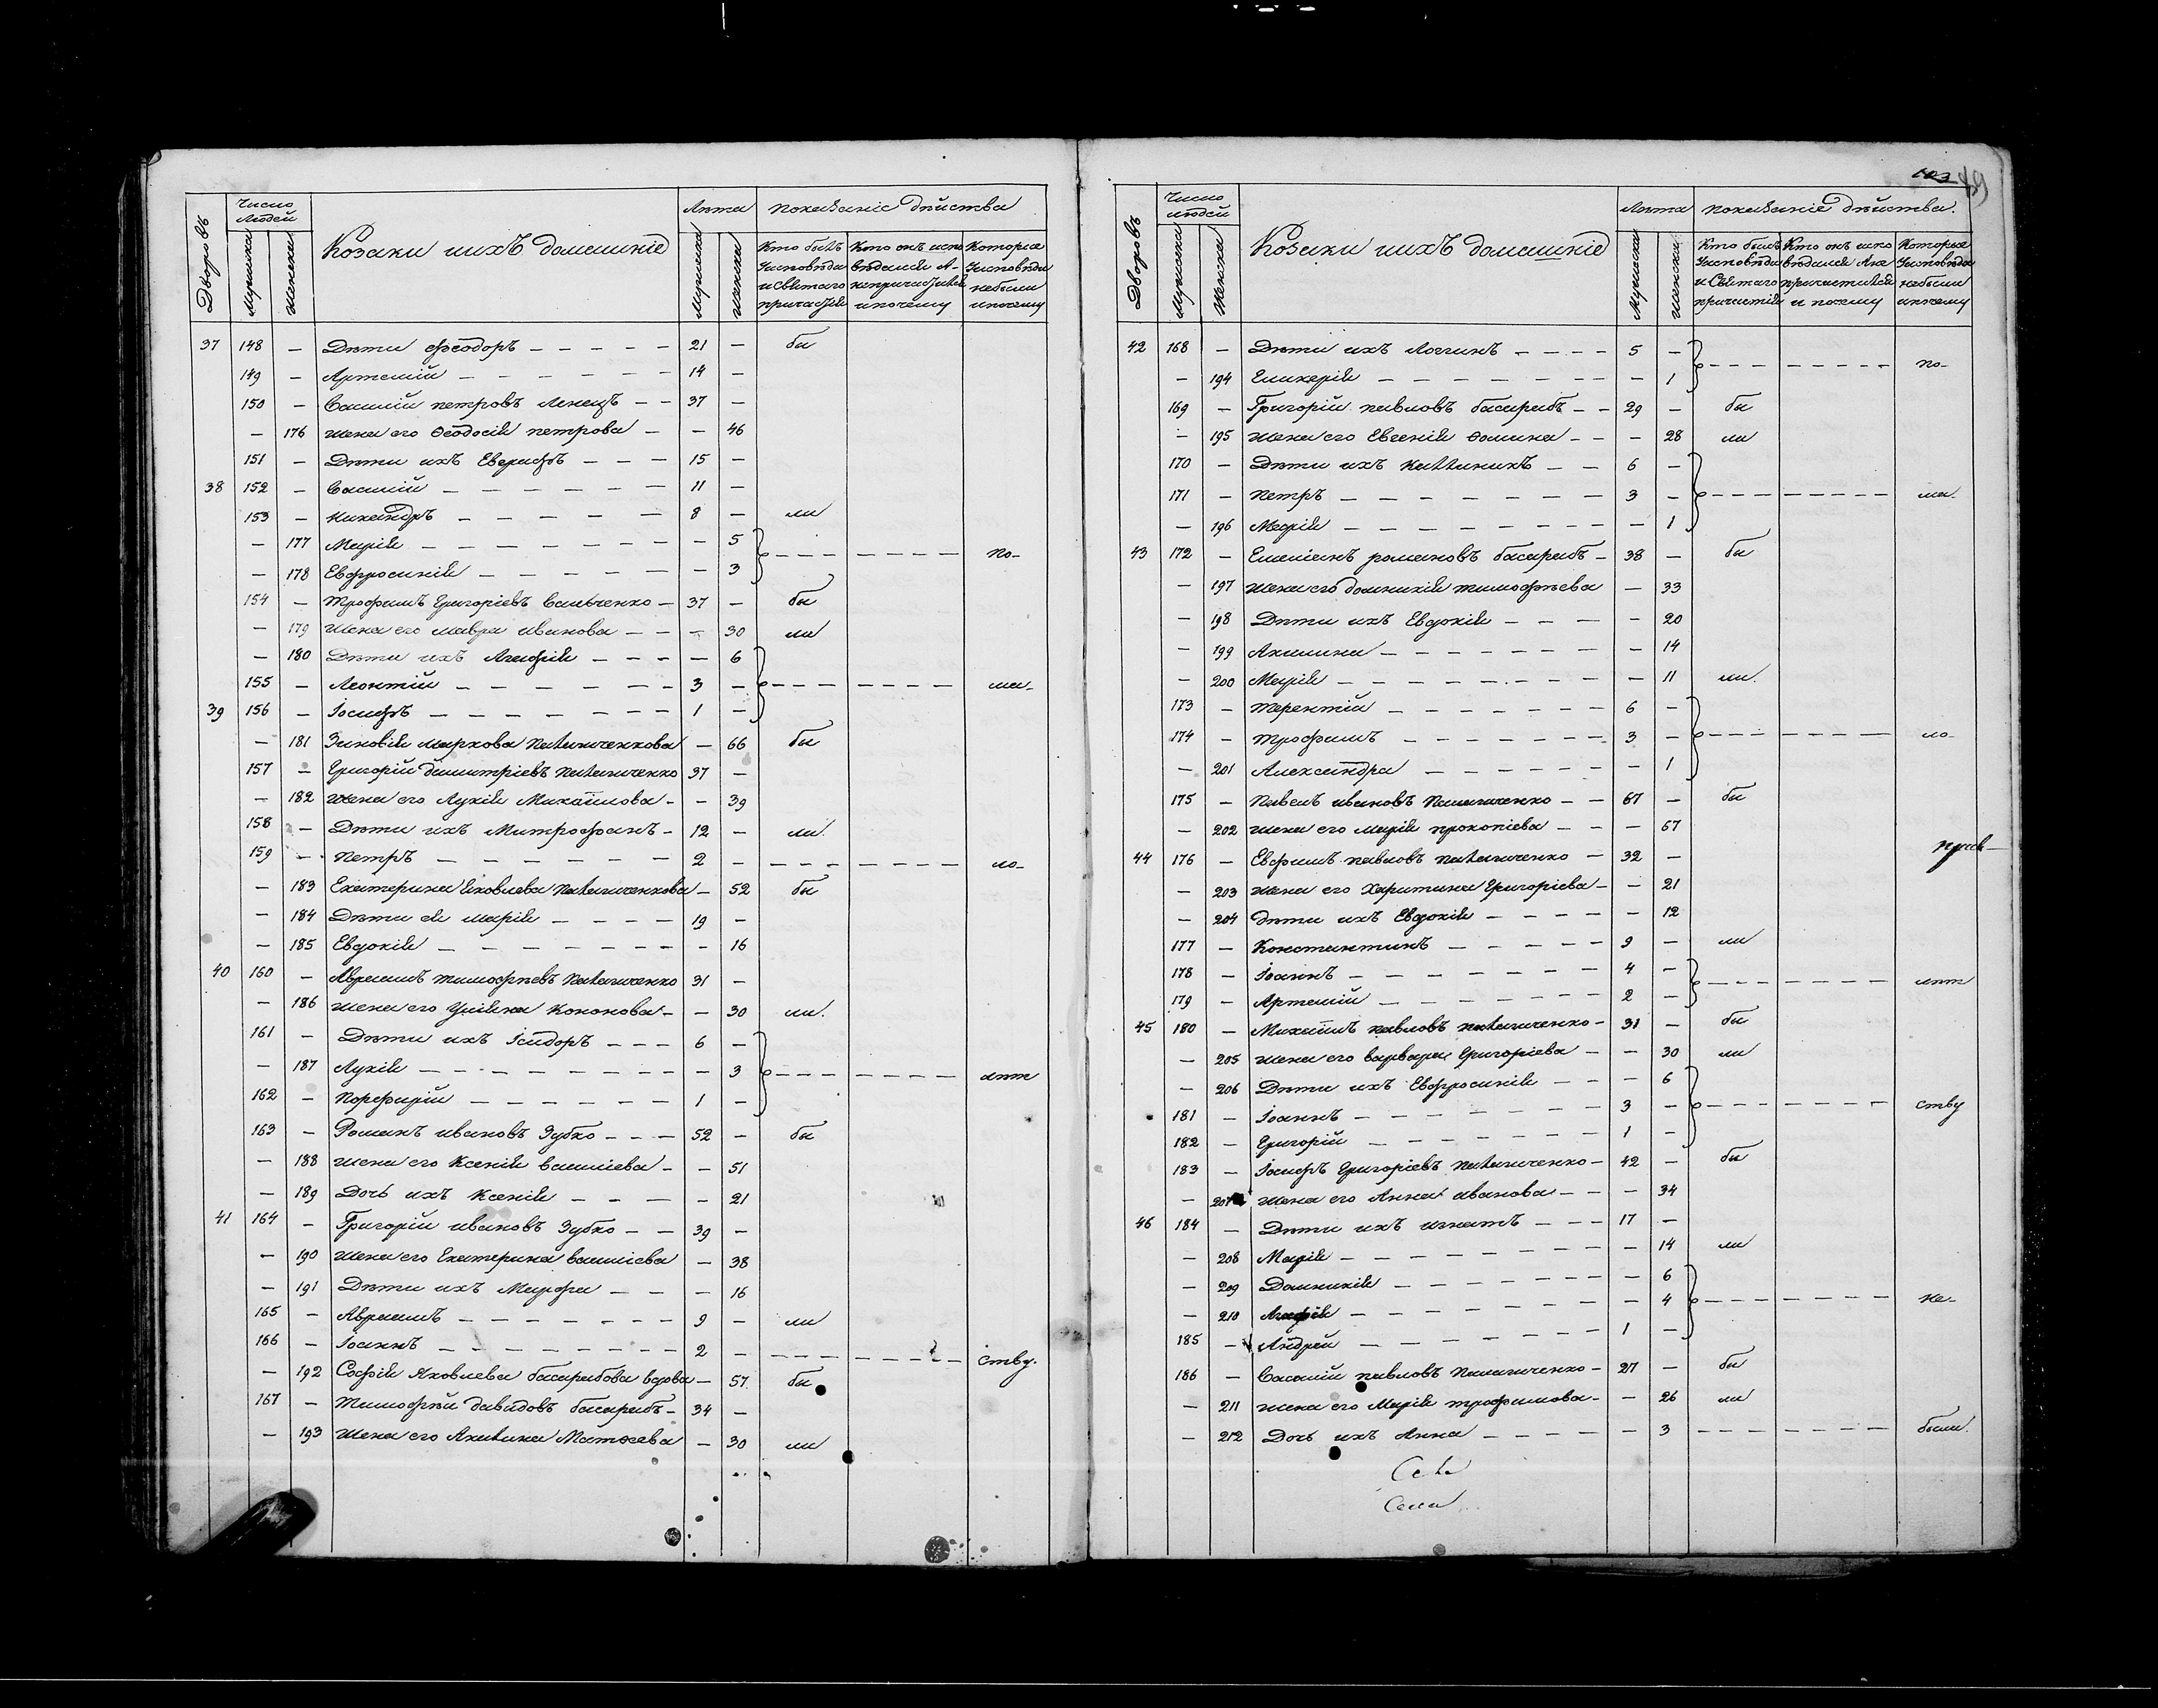 Дворовъ
Число Людей
Мужеска
Женска
Козаки иихъ домашніе
Лѣта
Мужеска
Женска
показаніе дѣйства
Кто былъ Уисповѣди и Святаго причастія
Кто онъ испо вѣдался А непричастился ипочему
Которые Уисповѣди небыли ипочему
37 148 — Дѣти феодоръ 21 — бы
149 — Артемій 14 —
150 — Василій петровъ 37 —
— 176 жена его Ѳеодосія петрова — 46
151 — Дѣти ихъ 15 —
38 152 — Василій 11 —
153 — никандръ 8 — ли
— 177 Марія — 5
— 178 Евфросинія — 3 по-
154 — трофимъ Григоріевъ Савченко 37 — бы
— 179 Жена его мавра иванова — 30 ли
— 180 Дѣти ихъ Агафія — 6
155 — Леонтій 3 — ма-
39 156 — Іосифъ 1 —
— 181 Зиновія маркова — 66 бы
157 — Григорій димитріевъ 37 —
— 182 жена его Лукія Михайлова — 39
158 — Дѣти ихъ Митрофанъ 12 — ли.
159 — петръ 2 — ло-
— 183 Екатерина яковлева — 52 бы
— 184 Дѣти ея марія 19 —
— 185 Евдокія — 16
40 160 — Авраамъ тимофѣевъ 31 —
— 186 жена его Уліяна Кононова — 30 ли.
161 — Дѣти ихъ Ісидоръ 6 —
— 187 Лукія — 3 лѣт
162 — Порфирій 1 —
163 — Романъ ивановъ Зубко 52 — бы
— 188 жена его Ксенія василіева — 51
— 189 Дочь ихъ Ксенія — 21
41 164 — Григорій ивановъ Зубко 39 —
— 190 жена его Екатерина василіева — 38
— 191 Дѣти ихъ Марфа — 16
165 — Авраамъ 9 — ли
166 — Іоаннъ 2 — ству.
— 192 Софія Яковлева басарабова вдова — 57 бы
167 — Тимофѣй давидовъ басарабъ 34 —
— 193 Жена его Акилина Матѳеева — 30 ли
Дворовъ
Число людей
Мужеска
Женска
Козаки иихъ домашніе
Лѣта
Мужеска
Женска
показаніе дѣйства.
Кто былъ Уисповѣди и Святаго причастія
Кто онъ испо вѣдался Ане причастился и почему
Которые Уисповѣди небыли ипочему
42 168 — Дѣти ихъ Логгинъ 5 —
— 194 Гликерія — 1 по-
169 — Григорій павловъ басарабъ 29 — бы
— 195 жена его Евгенія Ѳомина — 28 ли
170 — Дѣти ихъ Каллиникъ 6 —
171 — петръ 3 — ма.
— 196 Марія — 1
43 172 — Емеліанъ романовъ басарабъ 38 — бы
— 197 жена его домникія тимофѣева — 33
— 198 Дѣти ихъ Евдокія — 20
— 199 Акилина — 14
— 200 Марія — 11 ли.
173 — терентій 6 —
174 — трофимъ 3 — ло-
— 201 Александра — 1
175 — Павелъ ивановъ 67 — бы
— 202 жена его марія прокопіева — 67
44 176 — Евфимъ павловъ 32 —
— 203 жена его Харитина Григоріева — 21
— 204 дѣти ихъ Евдокія — 12
177 — Константинъ 9 — ли
178 — Іоаннъ 4 —
179 — Артемій 2 — лѣт
45 180 — Михаилъ павловъ 31 — бы
— 205 жена его варвара Григоріева — 30 ли
— 206 Дѣти ихъ Евфросинія — 6
181 — Іоаннъ 3 — ству
182 — Григорій 1 —
183 — Іосифъ Григоріевъ 42 — бы
— 207 жена его Анна иванова — 34
46 184 — Дѣти ихъ игнатъ 17 —
— 208 Марія — 14 ли
— 209 Домникія — 6
— 210 Агафія — 4 не-
185 — Андрей 1 —
186 — Василій павловъ 27 — бы
— 211 жена его Марія трофимова — 26 ли
— 212 Дочь ихъ Анна — 3 были.